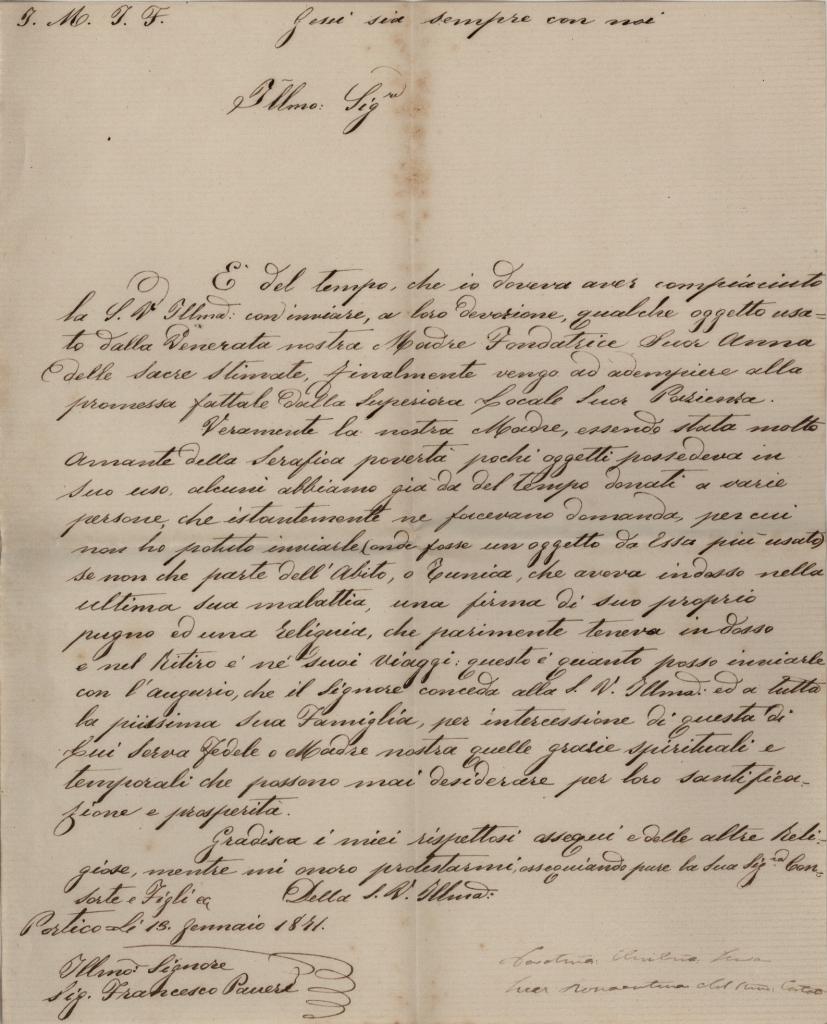 J. M. J. F. Gesù sia sempre con noi
Illmo: Sig.re
E' del tempo, che io doveva aver compiaciuto
la S. V. Illma: con inviare, a loro devozione, qualche oggetto usa-
to dalla Venerata nostra Madre Fondatrice Suor Anna
delle sacre stimate, finalmente vengo ad adempiere alla
promessa fattale dalla Superiora Locale Suor Pazienza.
Veramente la nostra Madre, essendo stata molto
amante della Serafica povertà pochi oggetti possedeva in
suo uso, alcuni abbiamo già da del tempo donati a varie
persone, che istantemente ne facevano domanda, per cui
non ho potuto inviarle (onde fosse un oggetto da Essa più usato)
se non che parte dell'Abito, o Tunica, che aveva indosso nella
ultima sua malattia, una firma di suo proprio
pugno ed una Reliquia, che parimente teneva indosso
e nel Ritiro e ne' suoi viaggi: questo è quanto posso inviarle
con l'augurio, che il Signore conceda alla S. V. Illma: ed a tutta
la piissima sua Famiglia, per intercessione di questa di
Lui Serva Fedele e Madre nostra quelle grazie spirituali e
temporali che possono mai desiderare per loro santifica-
zione e prosperità.
Gradisca i miei rispettosi ossequi e delle altre Reli-
giose, mentre mi onoro protestarmi, ossequiando pure la sua Sig.ra Con-
sorte e Figli
Della S. V. Illma:
Portico Li 19. Gennaio 1841.
Illmo: Signore
Sig. Francesco Paveri
Suor Bonaventura del